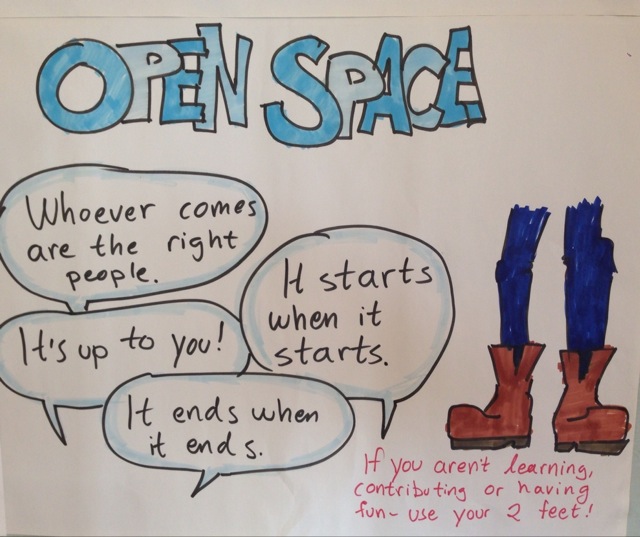 OPEN SPACE
Whoever comes
are the right
people.
It starts
when it
starts.
It's up to you!
It ends when
it ends.
If you aren't learning,
contributing or having
fun - use your 2 feet!